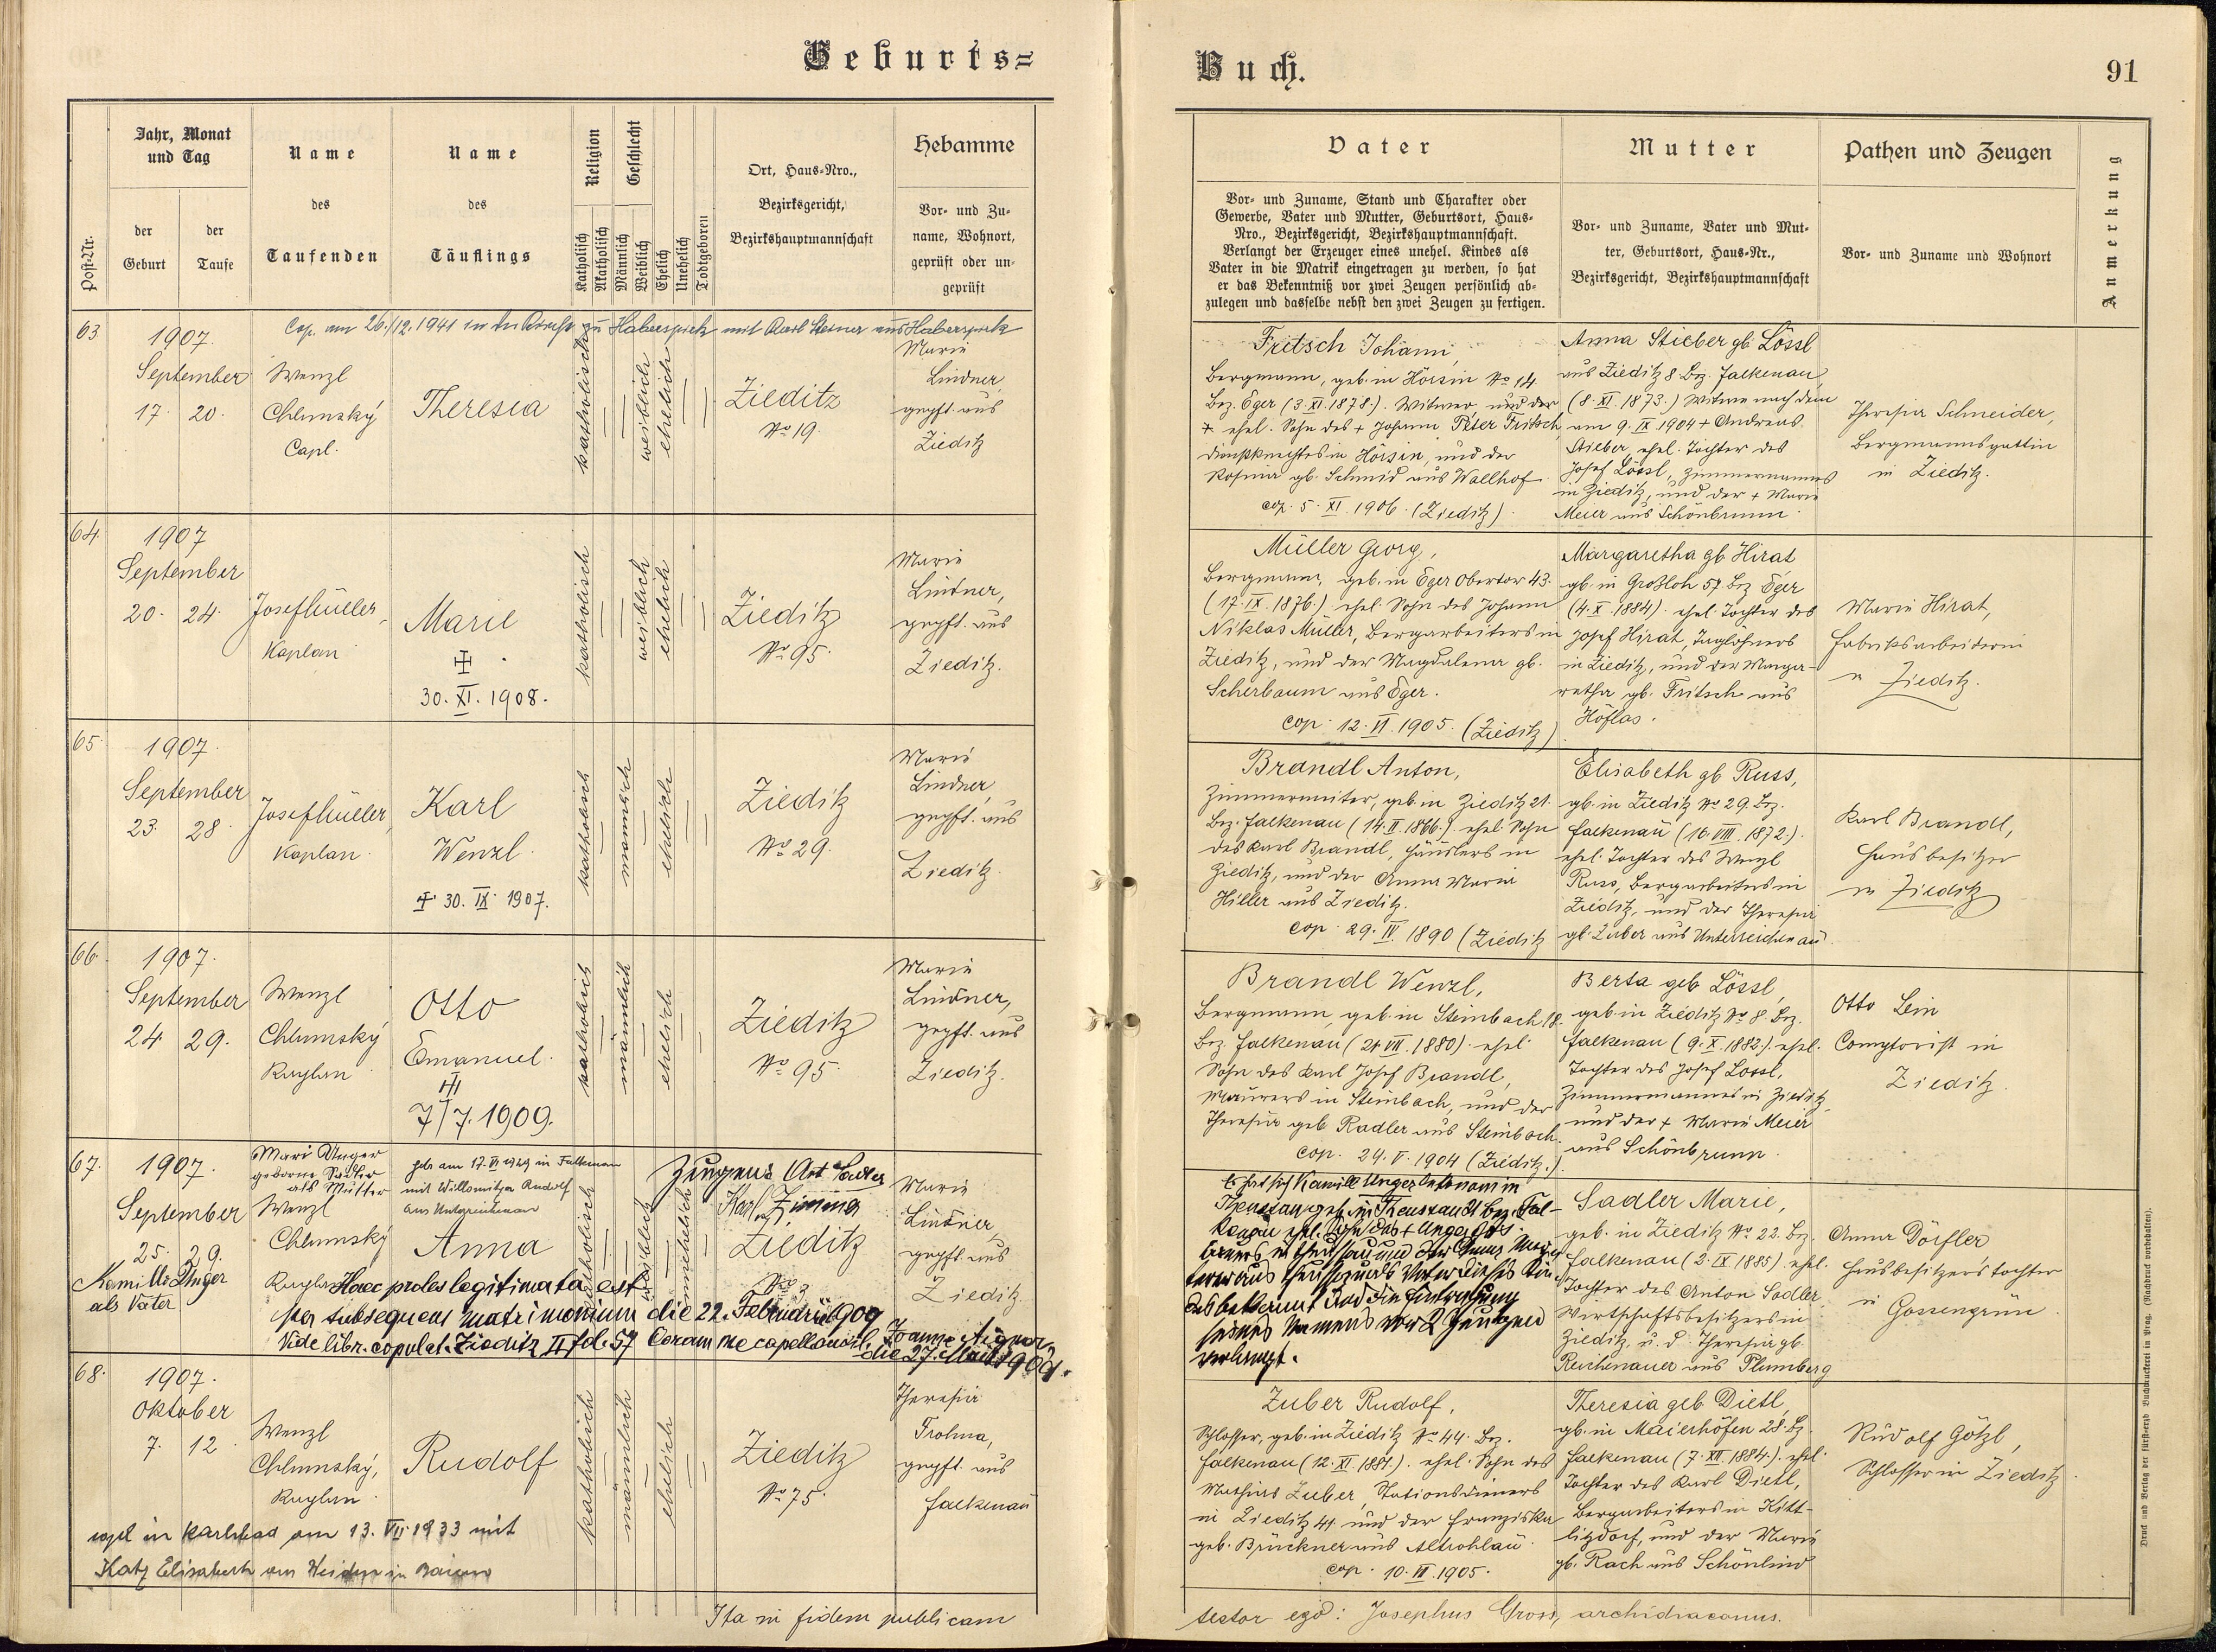 Geburts=
Buch.
91
Post-Nr.
Jahr, Monat
und Tag
der
Geburt
der
Taufe
Name
des
Taufenden
Name
des
Täuflings
Religion
Katholisch
Akatholisch
Geschlecht
Männlich
Weiblich
Ehelich
Unehelich
Todtgeboren
Ort, Haus-Nro.,
Bezirksgericht,
Bezirkshauptmannschaft
Hebamme
Vor- und Zu-
name, Wohnort,
geprüft oder un-
geprüft
Vater
Vor- und Zuname, Stand und Charakter oder
Gewerbe, Vater und Mutter, Geburtsort, Haus-
Nro., Bezirksgericht, Bezirkshauptmannschaft.
Verlangt der Erzeuger eines unehel. Kindes als
Vater in die Matrik eingetragen zu werden, so hat
er das Bekenntniß vor zwei Zeugen persönlich ab-
zulegen und dasselbe nebst den zwei Zeugen zu fertigen.
Mutter
Vor- und Zuname, Vater und Mut-
ter, Geburtsort, Haus-Nr.,
Bezirksgericht, Bezirkshauptmannschaft
Pathen und Zeugen
Vor- und Zuname und Wohnort
Anmerkung
63
Cop. am 26./12. 1941 in der Kirche zu Haberspirk mit Karl Steiner aus Haberspirk
1907.
September
17. 20.
Wenzl
Chlumský
Capl.
Theresia
katholisch
weiblich
ehelich
Zieditz
No 19.
Marie
Lindner,
gepft. aus
Zieditz
Fritsch Johann,
Bergmann, geb. in Hörsin No 14.
Bez. Eger (3. XI. 1878.). Witwer, und der
+ ehel. Sohn des + Johann Peter Fritsch,
Dienstknechtes in Hörsin, und der
Rosina gb. Schmid aus Wallhof
cop. 5. XI. 1906. (Zieditz).
Anna Stieber gb. Lössl
aus Zieditz 8. Bez. Falkenau
(8. XI. 1873.) Witwe nach dem
am 9. IX. 1904 + Andreas
Stieber, ehel. Tochter des
Josef Lössl, Zimmermannes
in Zieditz, und der + Marie
Meier aus Schönbrunn.
Theresia Schneider,
Bergmannsgattin
in Zieditz.
64.
1907
September
20. 24.
Josef Müller,
Kaplan
Marie
30. XI. 1908.
katholisch
weiblich
ehelich
Zieditz
No 95.
Marie
Lindner,
gepft. aus
Zieditz.
Müller Georg,
Bergmann, geb. in Eger Obertor 43.
(17. IX. 1876.) ehel. Sohn des Johann
Niklas Müller, Bergarbeiters in
Zieditz, und der Magdalena gb.
Scherbaum aus Eger.
cop. 12. VI. 1905. (Zieditz)
Margaretha gb. Hirat
gb. in Großloh 57 Bez Eger
(4. X. 1884). ehel. Tochter des
Josef Hirat, Taglöhners
in Zieditz, und der Marga-
retha gb. Fritsch aus
Höflas.
Marie Hirat,
Fabriksarbeiterin
in Zieditz.
65.
1907.
September
23. 28.
Josef Müller,
Kaplan.
Karl
Wenzl.
+ 30. IX. 1907.
katholisch
männlich
ehelich
Zieditz
No 29.
Marie
Lindner,
gepft. aus
Zieditz.
Brandl Anton,
Zimmermeister, geb. in Zieditz 21.
Bez. Falkenau (14. II. 1866.). ehel. Sohn
des Karl Brandl, Häuslers in
Zieditz, und der Anna Maria
Hiller aus Zieditz.
cop. 29. IV. 1890 (Zieditz
Elisabeth gb Russ,
gb. in Zieditz No 29. Bez.
Falkenau (16. VIII. 1872.).
ehel. Tochter des Wenzl
Russ, Bergarbeiters in
Zieditz, und der Theresia
gb. Zuber aus Unterreichenau.
Karl Brandl,
Hausbesitzer
in Zieditz
66.
1907.
September
24. 29.
Wenzl
Chlumský
Kaplan
Otto
Emanuel.
7/7. 1909.
katholisch
männlich
ehelich
Zieditz
No 95.
Marie
Lindner,
gepft. aus
Zieditz.
Brandl Wenzl,
Bergmann, geb. in Steinbach 18.
Bez. Falkenau (21. VII. 1880). ehel.
Sohn des Karl Josef Brandl,
Maurers in Steinbach, und der
Theresia geb Radler aus Steinbach.
cop. 24. V. 1904 (Zieditz.)
Berta geb Lössl,
geb. in Zieditz No 8. Bez.
Falkenau (9. X. 1882.). ehel.
Tochter des Josef Lössl,
Zimmermannes in Zieditz,
und der + Marie Meier
aus Schönbrunn.
Otto Lein
Comptorist in
Zieditz.
67.
1907.
September
25. 29.
Kamillo Unger
als Vater
Mari Unger
geborne Sadler
als Mutter
Wenzl
Chlumský
Kaplan
getr am 17. VI 1929 in Falkenau
mit Willomitzer Rudolf
aus Unterreichenau
Anna
katholisch
weiblich
unehelich
Zeugen: Ant Sadler
Karl Zimma
Zieditz
No 3
Marie
Lindner,
gepft. aus
Zieditz.
Haec proles legitimata est
per subsequens matrimonium die 22. Februarii 1909
Vide libr. copulat. Zieditz II fol. 57 Coram me capellano
Joanne Aigner
die 27. Maii 1909.
Es hat sich Kamill Unger
seines Namens vor 2 Zeugen
verlangt.
Sadler Marie,
geb. in Zieditz No 22. Bez.
Falkenau (2. IX. 1885). ehel.
Tochter des Anton Sadler
Wirtschaftsbesitzers in
Zieditz, u. d. Theresia gb.
Reichenauer aus Plumberg
Anna Dörfler
Hausbesitzerstochter
in
Gossengrün.
68.
1907.
Oktober
7. 12.
Wenzl
Chlumský,
Kaplan.
Rudolf
katholisch
männlich
ehelich
Zieditz
No 75.
Theresia
Frohma,
gepft. aus
Falkenau
copul in Karlsbad am 13. VII. 1933 mit
Katz Elisabeth aus Weiden in Baiern
Zuber Rudolf,
Schlosser, geb. in Zieditz No 44. Bez.
Falkenau (12. XI. 1881.). ehel. Sohn des
Mathias Zuber, Stationsdieners
in Zieditz 41 und der Franziska
geb. Brückner aus Altrohlau.
cop. 10. VI. 1905.
Theresia geb Dietl,
gb. in Maierhöfen 28. Bz.
Falkenau (7. XII. 1884.). ehel.
Tochter des Karl Dietl,
Bergarbeiters in Kitt-
litzdorf, und der Marie
gb. Rach aus Schönlind
Rudolf Götzl,
Schlosser in Zieditz.
Ita in fidem publicam
testor ego: Josephus Gross, archidiaconus.
Druck und Verlag der fürsterzb. Buchdruckerei in Prag. (Nachdruck vorbehalten).